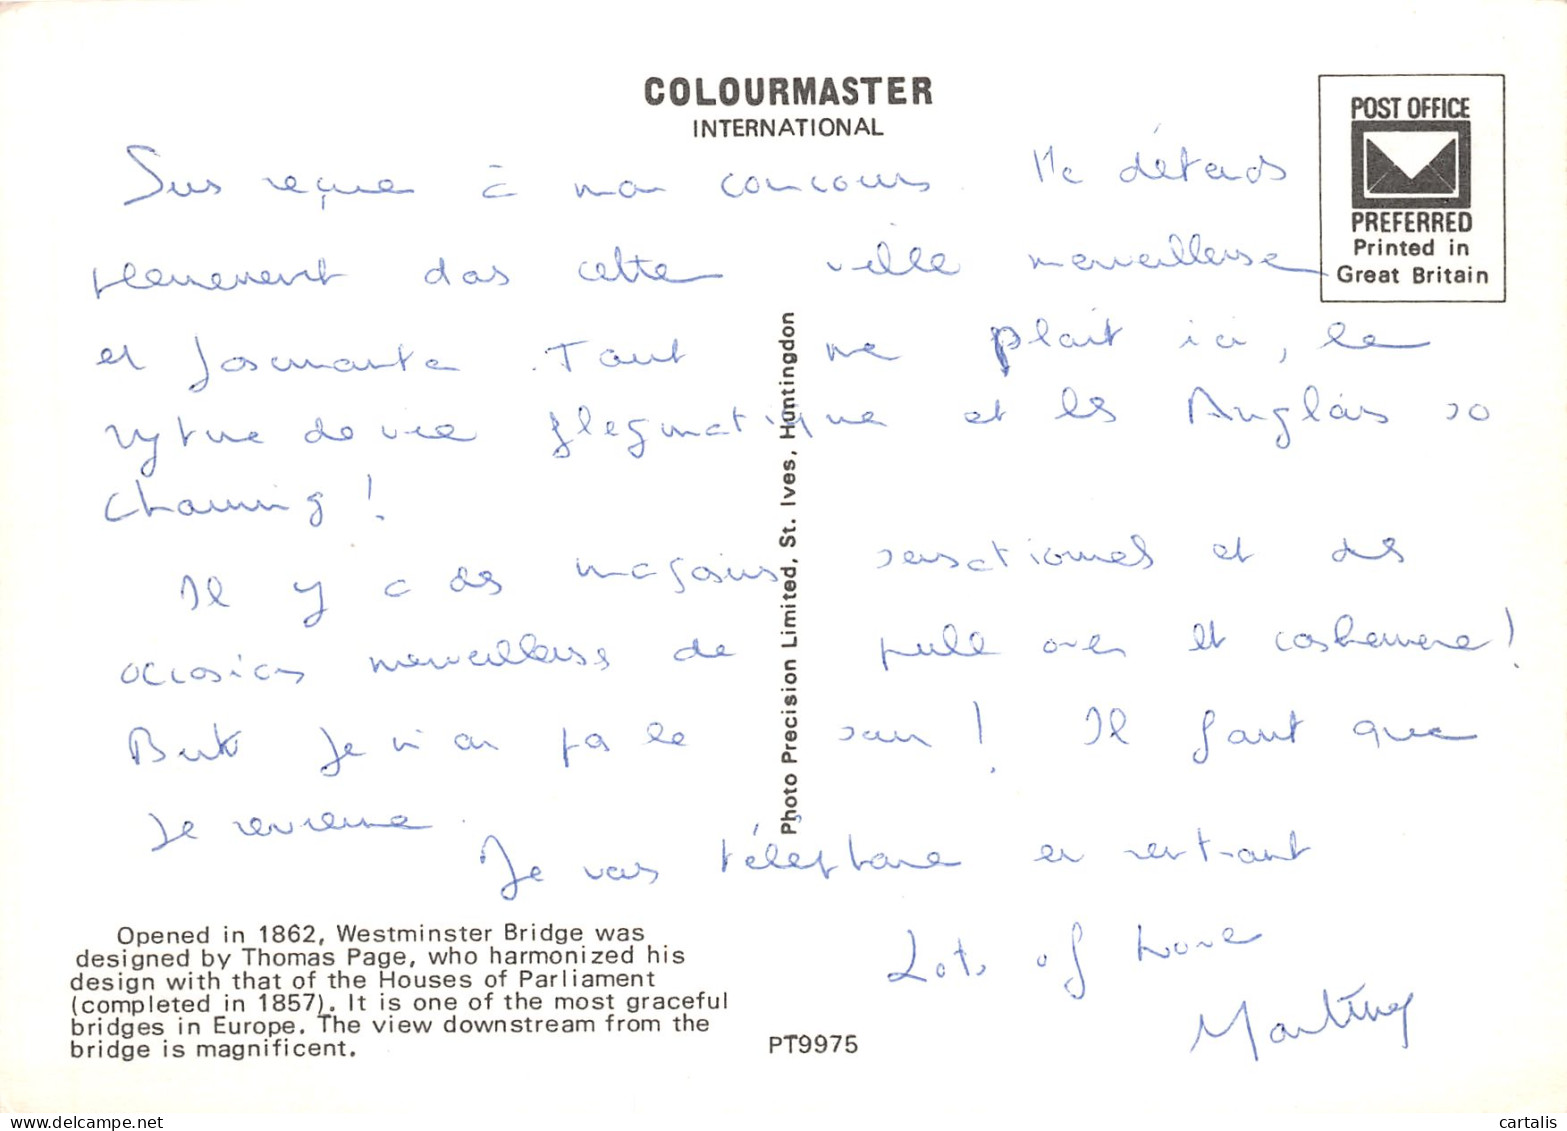 COLOURMASTER
INTERNATIONAL
POST OFFICE
PREFERRED
Printed in
Great Britain
Suis reçue à mon concours. Me détends
pleinement dans cette ville merveilleuse
et fascinante. Tout me plaît ici, le
rythme de vie flegmatique et les Anglais so
charming !
Il y a des magasins sensationnels et des
occasions merveilleuses de pull over et cashemere !
But je n'ai pas le sou ! Il faut que
je revienne.
Je vous téléphone en rentrant
Lots of love
Martine
Photo Precision Limited, St. Ives, Huntingdon
Opened in 1862, Westminster Bridge was
designed by Thomas Page, who harmonized his
design with that of the Houses of Parliament
(completed in 1857). It is one of the most graceful
bridges in Europe. The view downstream from the
bridge is magnificent.
PT9975
cartalis